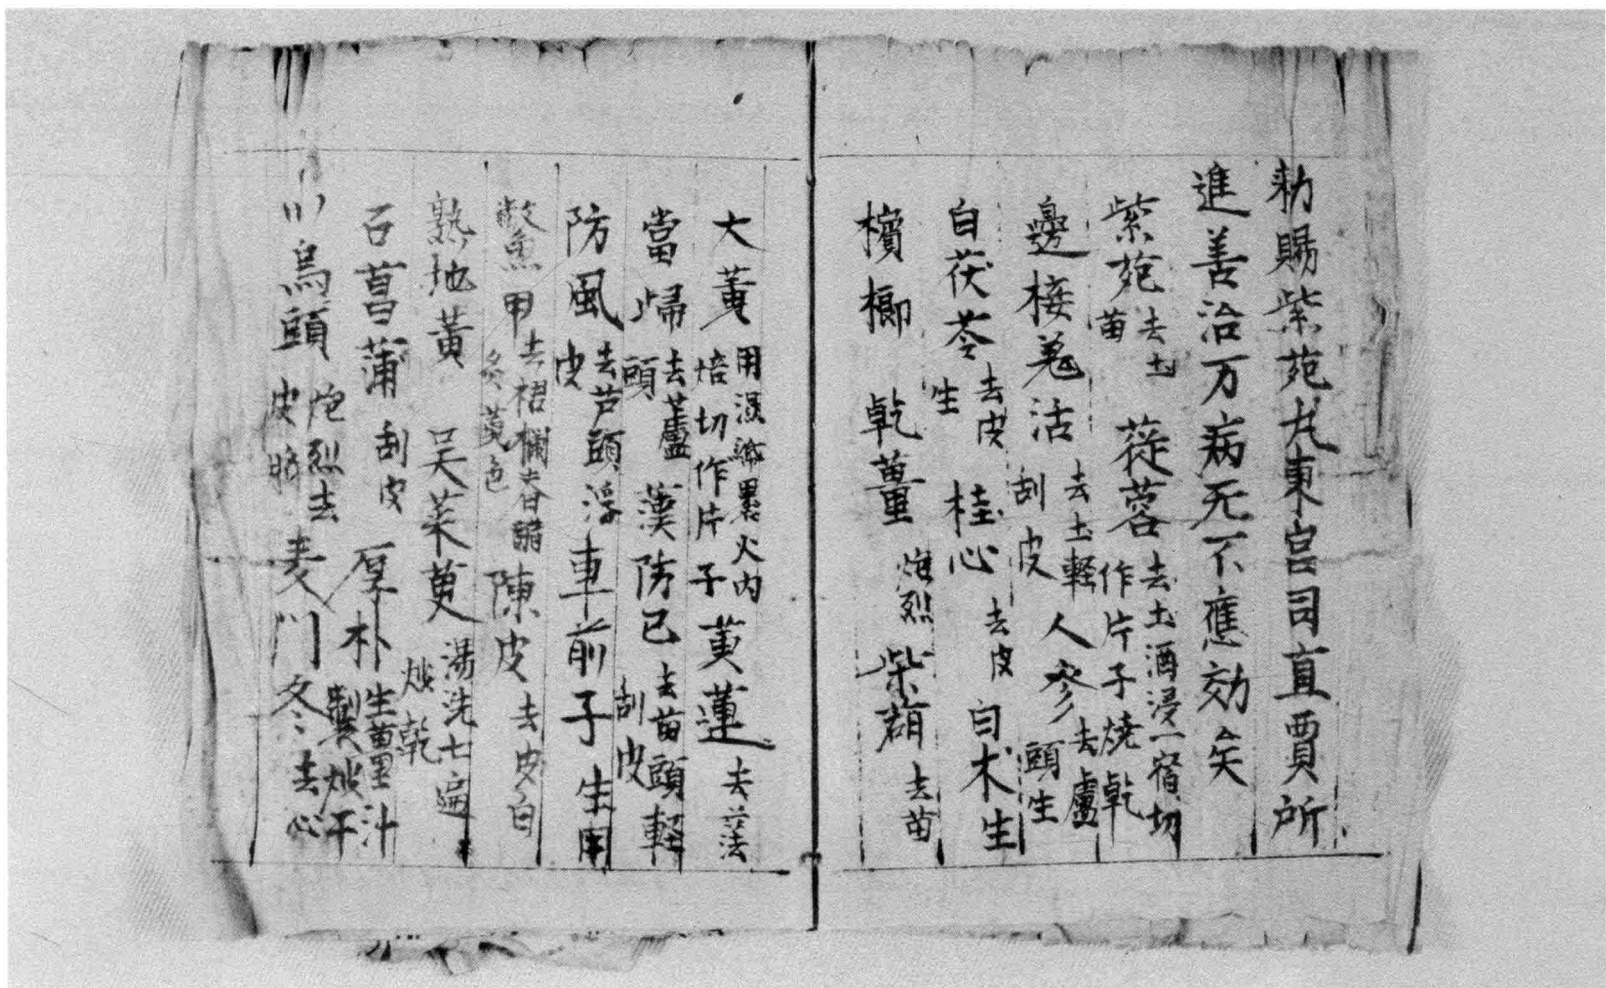 勑賜紫菀丸東宮司直賈所
進善治万病无不應効矣
紫菀去土苗 蓯蓉去土酒浸一宿切作片子燒乹
邊接羗活去土輕刮皮 人參去蘆頭生
白茯苓去皮生 桂心去皮 白木生
檳榔 乹薑炮烈 柴葫去苗
大黃用濕紙裹火内焙切作片子 黃蓮去
當㱕去蘆頭 漢防已去苗頭輕刮皮
防風去芦頭浮皮 車前子生用
鱉魚甲去裙襴 炙黃色 陳皮去皮白
熟地黃 吴茱萸湯洗七遍炒乾
石菖蒲刮皮 厚朴生薑汁製炒干
川烏頭炮烈去皮臍 麦门冬去心